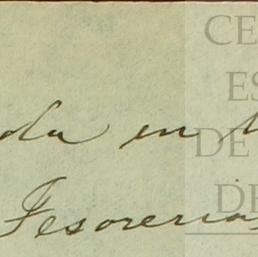 da en
Tesoreria
CE
ES
DE
DE